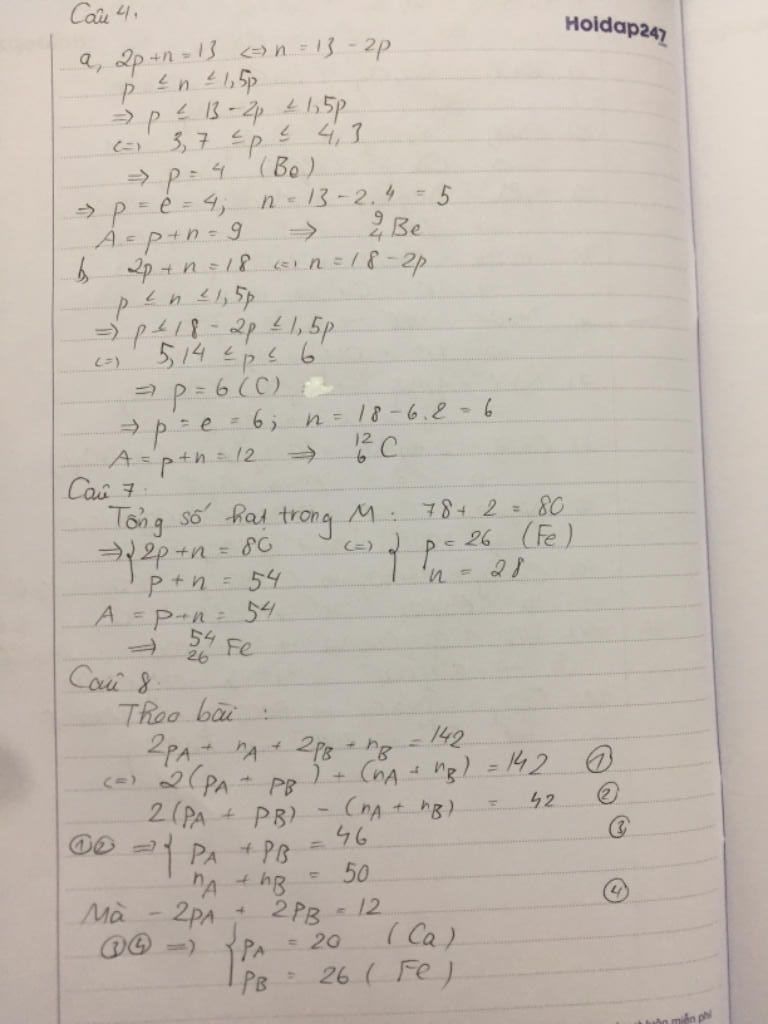 Câu 4.
Hoidap247
a, 2p+n=13 <=> n=13-2p
p ≤ n ≤ 1,5p
=> p ≤ 13-2p ≤ 1,5p
<=> 3,7 ≤ p ≤ 4,3
=> p = 4 (Be)
=> p = e = 4; n = 13-2.4 = 5
A = p+n = 9 => ⁹₄Be
b, 2p+n=18 <=> n=18-2p
p ≤ n ≤ 1,5p
=> p ≤ 18-2p ≤ 1,5p
<=> 5,14 ≤ p ≤ 6
=> p = 6 (C)
=> p = e = 6; n = 18-6.2 = 6
A = p+n = 12 => ¹²₆C
Câu 7.
Tổng số hạt trong M: 78+2 = 80
=> { 2p+n = 80 <=> { p = 26 (Fe)
p+n = 54 n = 28
A = p+n = 54
=> ⁵⁴₂₆Fe
Câu 8.
Theo bài:
2pA + nA + 2pB + nB = 142
<=> 2(pA + pB) + (nA + nB) = 142 ①
2(pA + pB) - (nA + nB) = 42 ②
①② => { pA + pB = 46 ③
nA + nB = 50
Mà -2pA + 2pB = 12 ④
③④ => { pA = 20 (Ca)
pB = 26 (Fe)
luận miễn phí